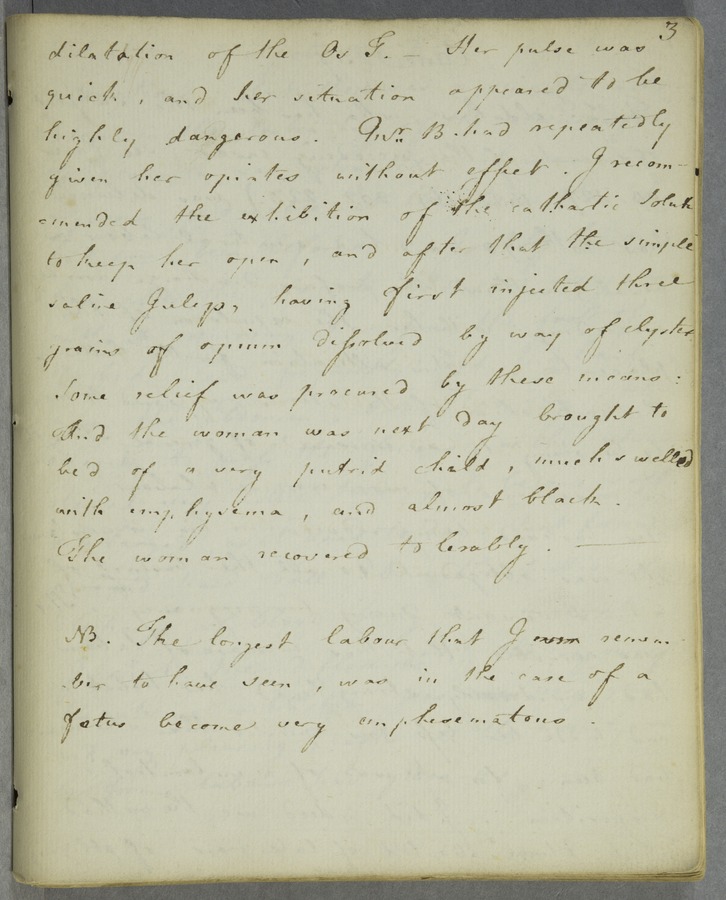 3
dilatation of the Os T. – Her pulse was
quick, and her situation appeared to be
highly dangerous. Mr. B. had repeatedly
given her opiates without effect. I recom-
mended the exhibition of the cathartic Solut
to keep her open, and after that the simple
saline Julep, having first injected three
grains of opium dissolved by way of clyster
Some relief was procured by these means:
And the woman was next day brought to
bed of a very putrid child, much swelled
with emphysema, and almost black.
The woman recovered tolerably. —
NB. The longest labour that I remem-
ber to have seen, was in the case of a
fœtus become very emphesematous.